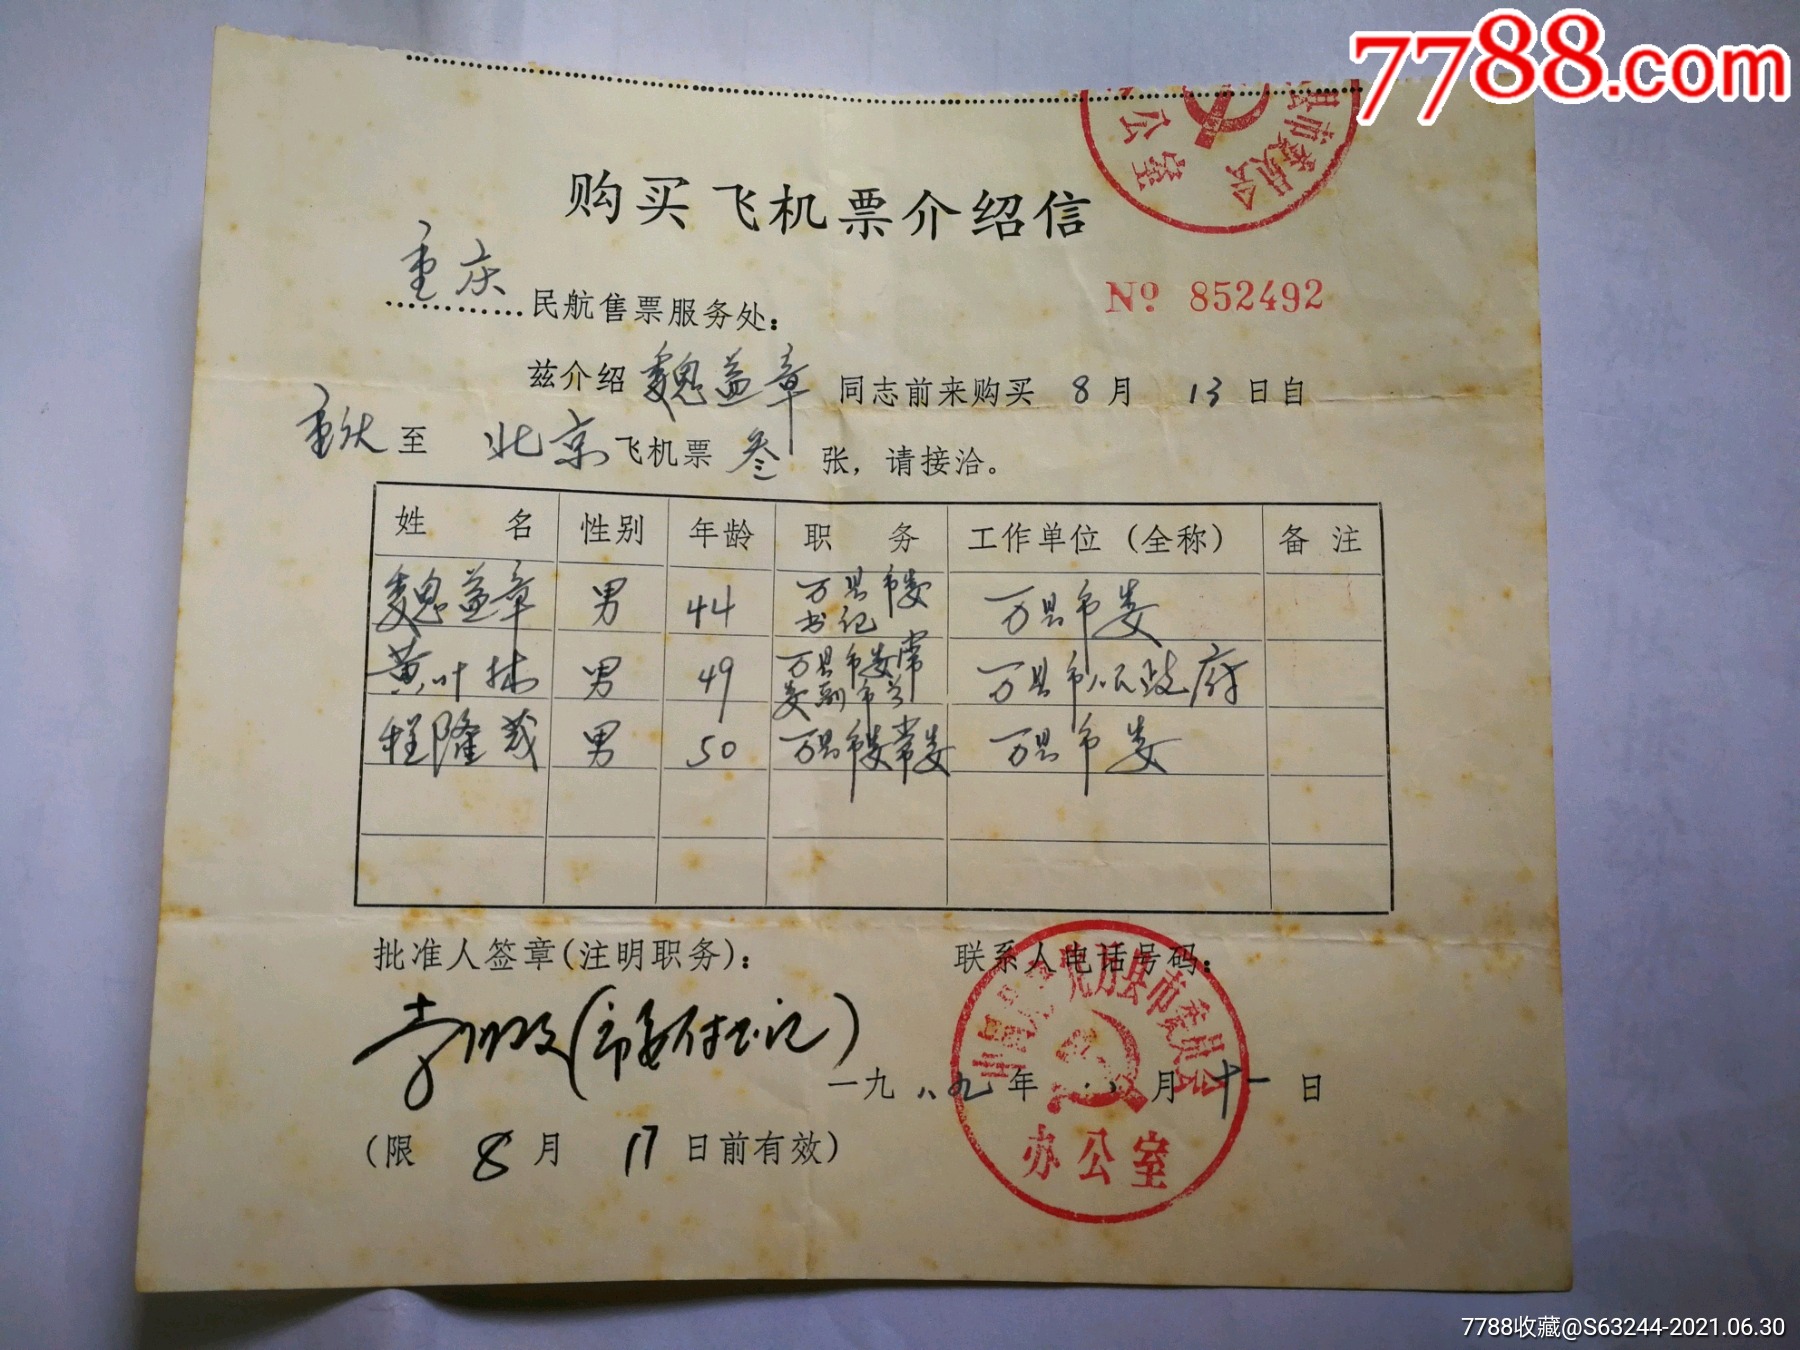 7788.com
县市委员会
公室
购买飞机票介绍信
重庆民航售票服务处:
№ 852492
兹介绍 魏益章 同志前来购买 8 月 13 日自
重庆 至 北京 飞机票 叁 张，请接洽。
姓 名 性别 年龄 职 务 工作单位（全称） 备 注
魏益章 男 44 万县市委书记 万县市委
黄叶林 男 49 万县市委常委副市长 万县市人民政府
程隆茂 男 50 万县市委常委 万县市委
批准人签章(注明职务): 联系人电话号码:
(市委付书记)
一九八九年 八 月 十一 日
(限 8 月 17 日前有效)
中国共产党万县市委员会
办公室
7788收藏@S63244-2021.06.30